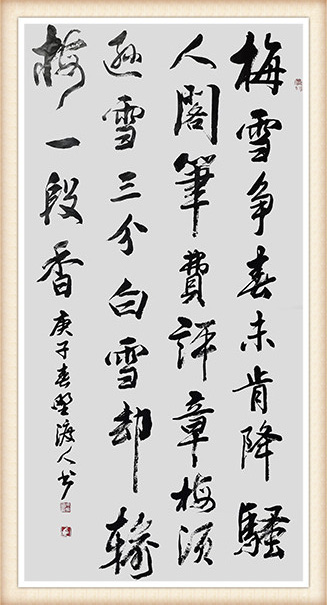 梅雪争春未肯降騷
人閣筆費評章梅須
逊雪三分白雪却輸
梅一段香
庚子春渡人书